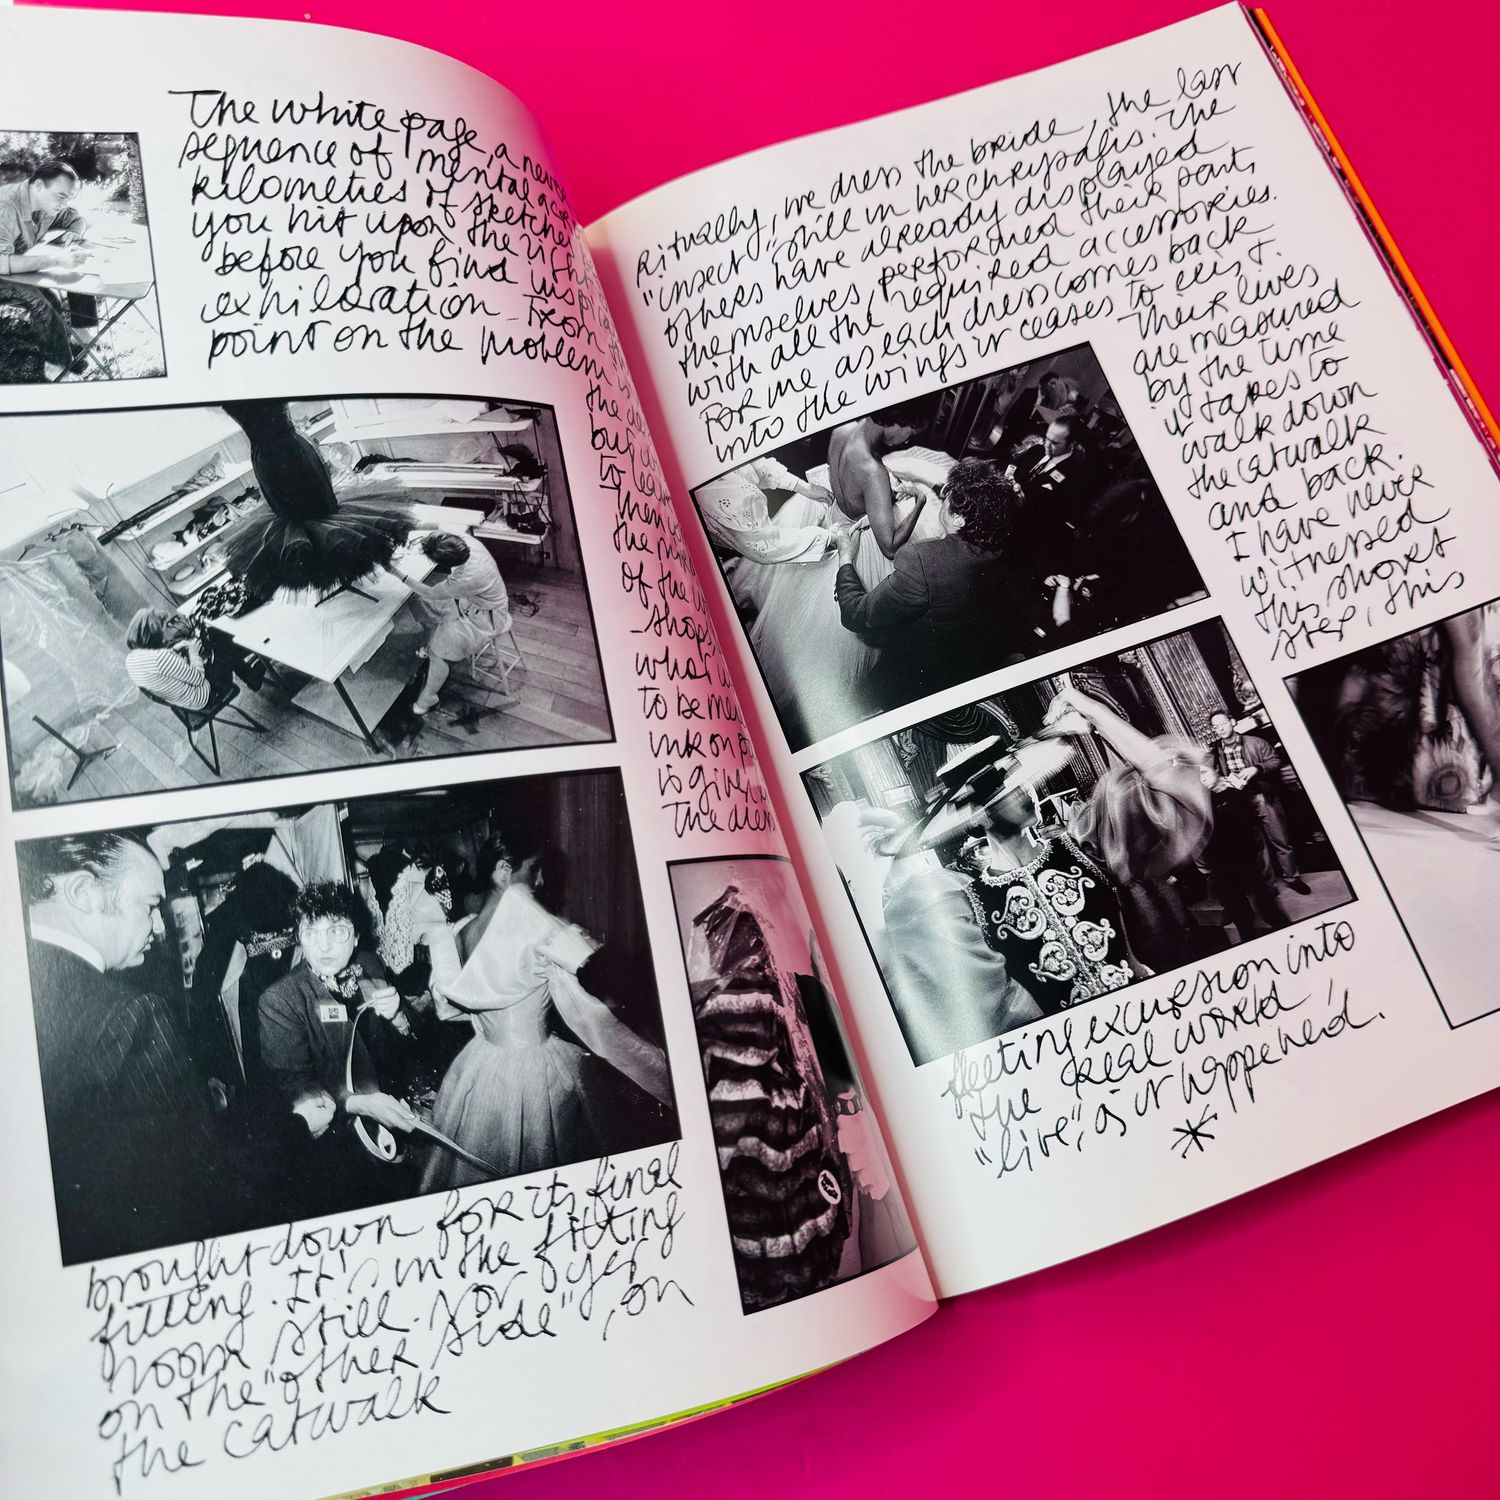 The white page, a new
sequence of mental
kilometres of sketches
you hit upon the right
before you find
exhilaration. From
point on the problem is
the
but
to
Then
the
of the
-shops,
what
to be
ink on
is given
The dress
brought down for its final
fitting. It's in the fitting
room still. Not yet
on the "other side", on
the catwalk
Ritually, we dress the bride, the last
"insect" still in her chrysalis. The
others have already displayed
themselves, performed their parts
with all the required accessories.
For me, as each dress comes back
into the wings it ceases to exist.
Their lives
are measured
by the time
it takes to
walk down
the catwalk
and back.
I have never
witnessed
this short
step, this
fleeting excursion into
the real world
"live", as it happened.
*